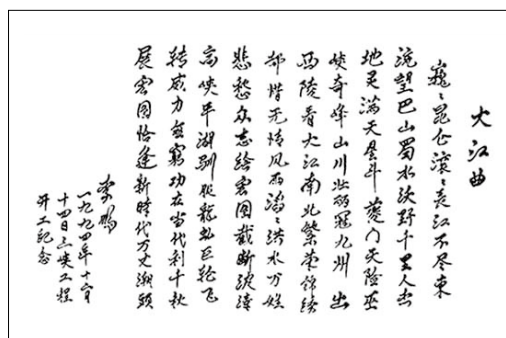 大江曲
巍〻昆仑滚〻长江不尽东
流望巴山蜀水沃野千里人杰
地灵满天星斗夔门天险巫
峡奇峰山川壮丽冠九州出
西陵看大江南北繁荣锦绣
都惜无情风雨滔〻洪水万姓
悲愁众志绘宏图截断波涛
高峡平湖驯服龙虬巨轮飞
转威力無窮功在当代利千秋
展宏图恰逢新时代万丈潮头
李鹏
一九九四年十二月
十四日三峡工程
开工纪念